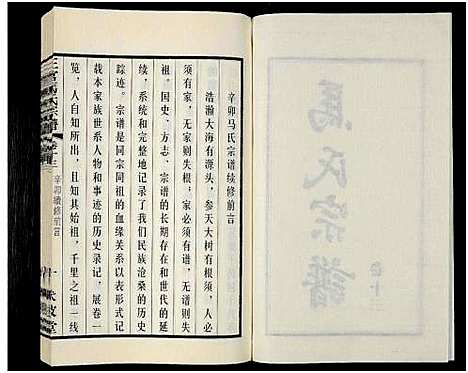 馬氏宗譜
卷十三
辛卯马氏宗谱续修前言
浩瀚大海有源头，参天大树有根须，人必
须有家，无家则失根；家必须有谱，无谱则失
祖。国史、方志、宗谱的长期存在和世代的延
续，系统和完整地记录了我们民族沧桑的历史
踪迹。宗谱是同宗同祖的血缘关系以表形式记
载本家族世系人物和事迹的历史录记，展卷一
览，人自知所出，且知其始祖，千里之祖一线
辛卯續修前言
一